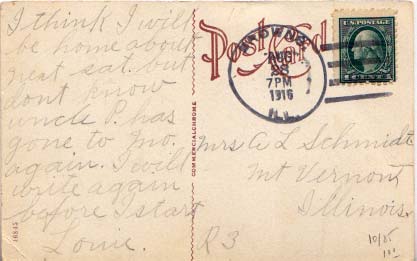 I think I will
be home about
next sat. but
dont know
uncle P. has
gone to Mo.
again. I will
write again
before I start
Louie.
16845
COMMERCIALCHROME
Post Card
AUG
28
7PM
1916
U.S. POSTAGE
1 CENT 1
Mrs A L Schmidt
Mt Vernon
Illinois.
R 3
10/25